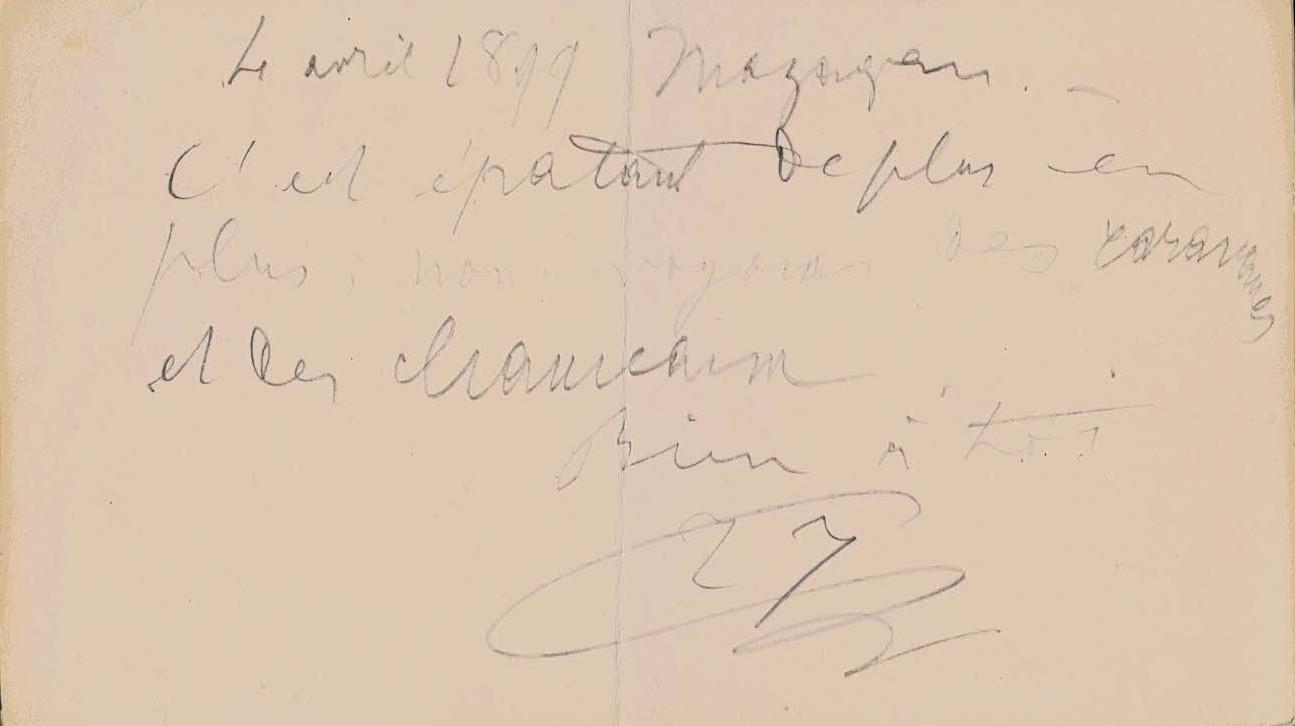 4 avril 1899 Mazagan. –
C'est épatant de plus en
plus, nous voyons des caravanes
et des
Bien à toi